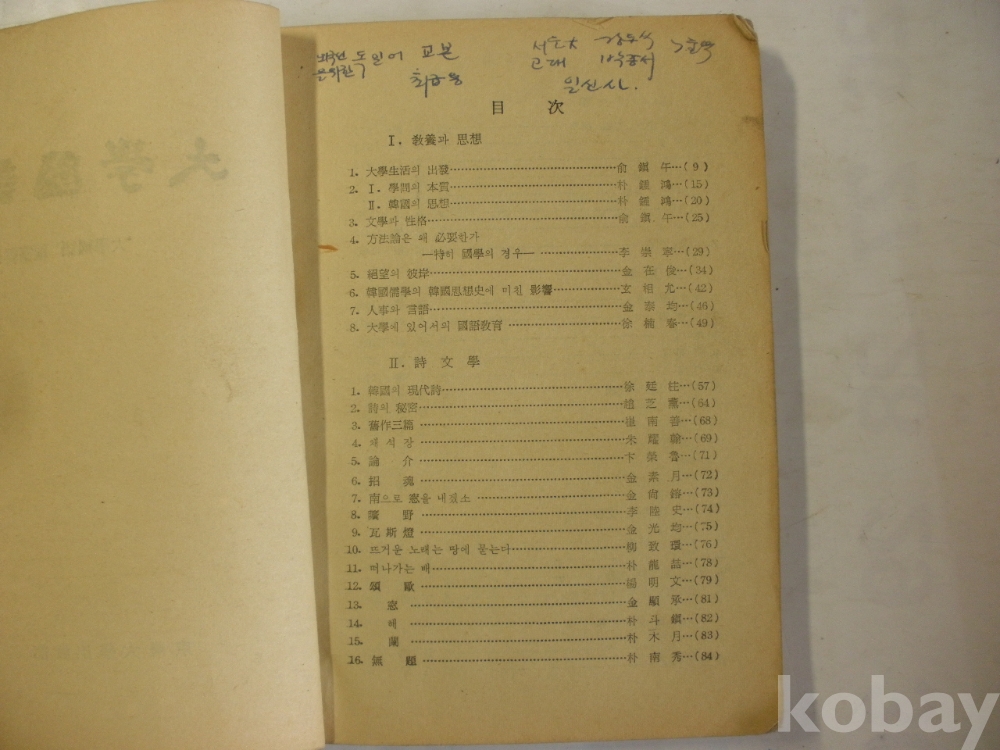 독일어 교본
고대
일신사.
目 次
Ⅰ. 敎養과 思想
1. 大學生活의 出發 兪 鎭 午…( 9 )
2. Ⅰ. 學問의 本質 朴 鍾 鴻…(15)
Ⅱ. 韓國의 思想 朴 鍾 鴻…(20)
3. 文學과 性格 兪 鎭 午…(25)
4. 方法論은 왜 必要한가
—特히 國學의 경우— 李 崇 寧…(29)
5. 絕望의 彼岸 金 在 俊…(34)
6. 韓國儒學의 韓國思想史에 미친 影響 玄 相 允…(42)
7. 人事와 言語 金 泰 均…(46)
8. 大學에 있어서의 國語敎育 徐 楠 春…(49)
Ⅱ. 詩 文 學
1. 韓國의 現代詩 徐 廷 柱…(57)
2. 詩의 秘密 趙 芝 薰…(64)
3. 舊作三篇 崔 南 善…(68)
4. 채 석 장 朱 耀 翰…(69)
5. 論 介 卞 榮 魯…(71)
6. 招 魂 金 素 月…(72)
7. 南으로 窓을 내겠소 金 尙 鎔…(73)
8. 曠 野 李 陸 史…(74)
9. 瓦斯燈 金 光 均…(75)
10. 뜨거운 노래는 땅에 묻는다 柳 致 環…(76)
11. 떠나가는 배 朴 龍 喆…(78)
12. 頌 歌 楊 明 文…(79)
13. 窓 金 顯 承…(81)
14. 해 朴 斗 鎭…(82)
15. 蘭 朴 木 月…(83)
16. 無 題 朴 南 秀…(84)
大學國
kobay